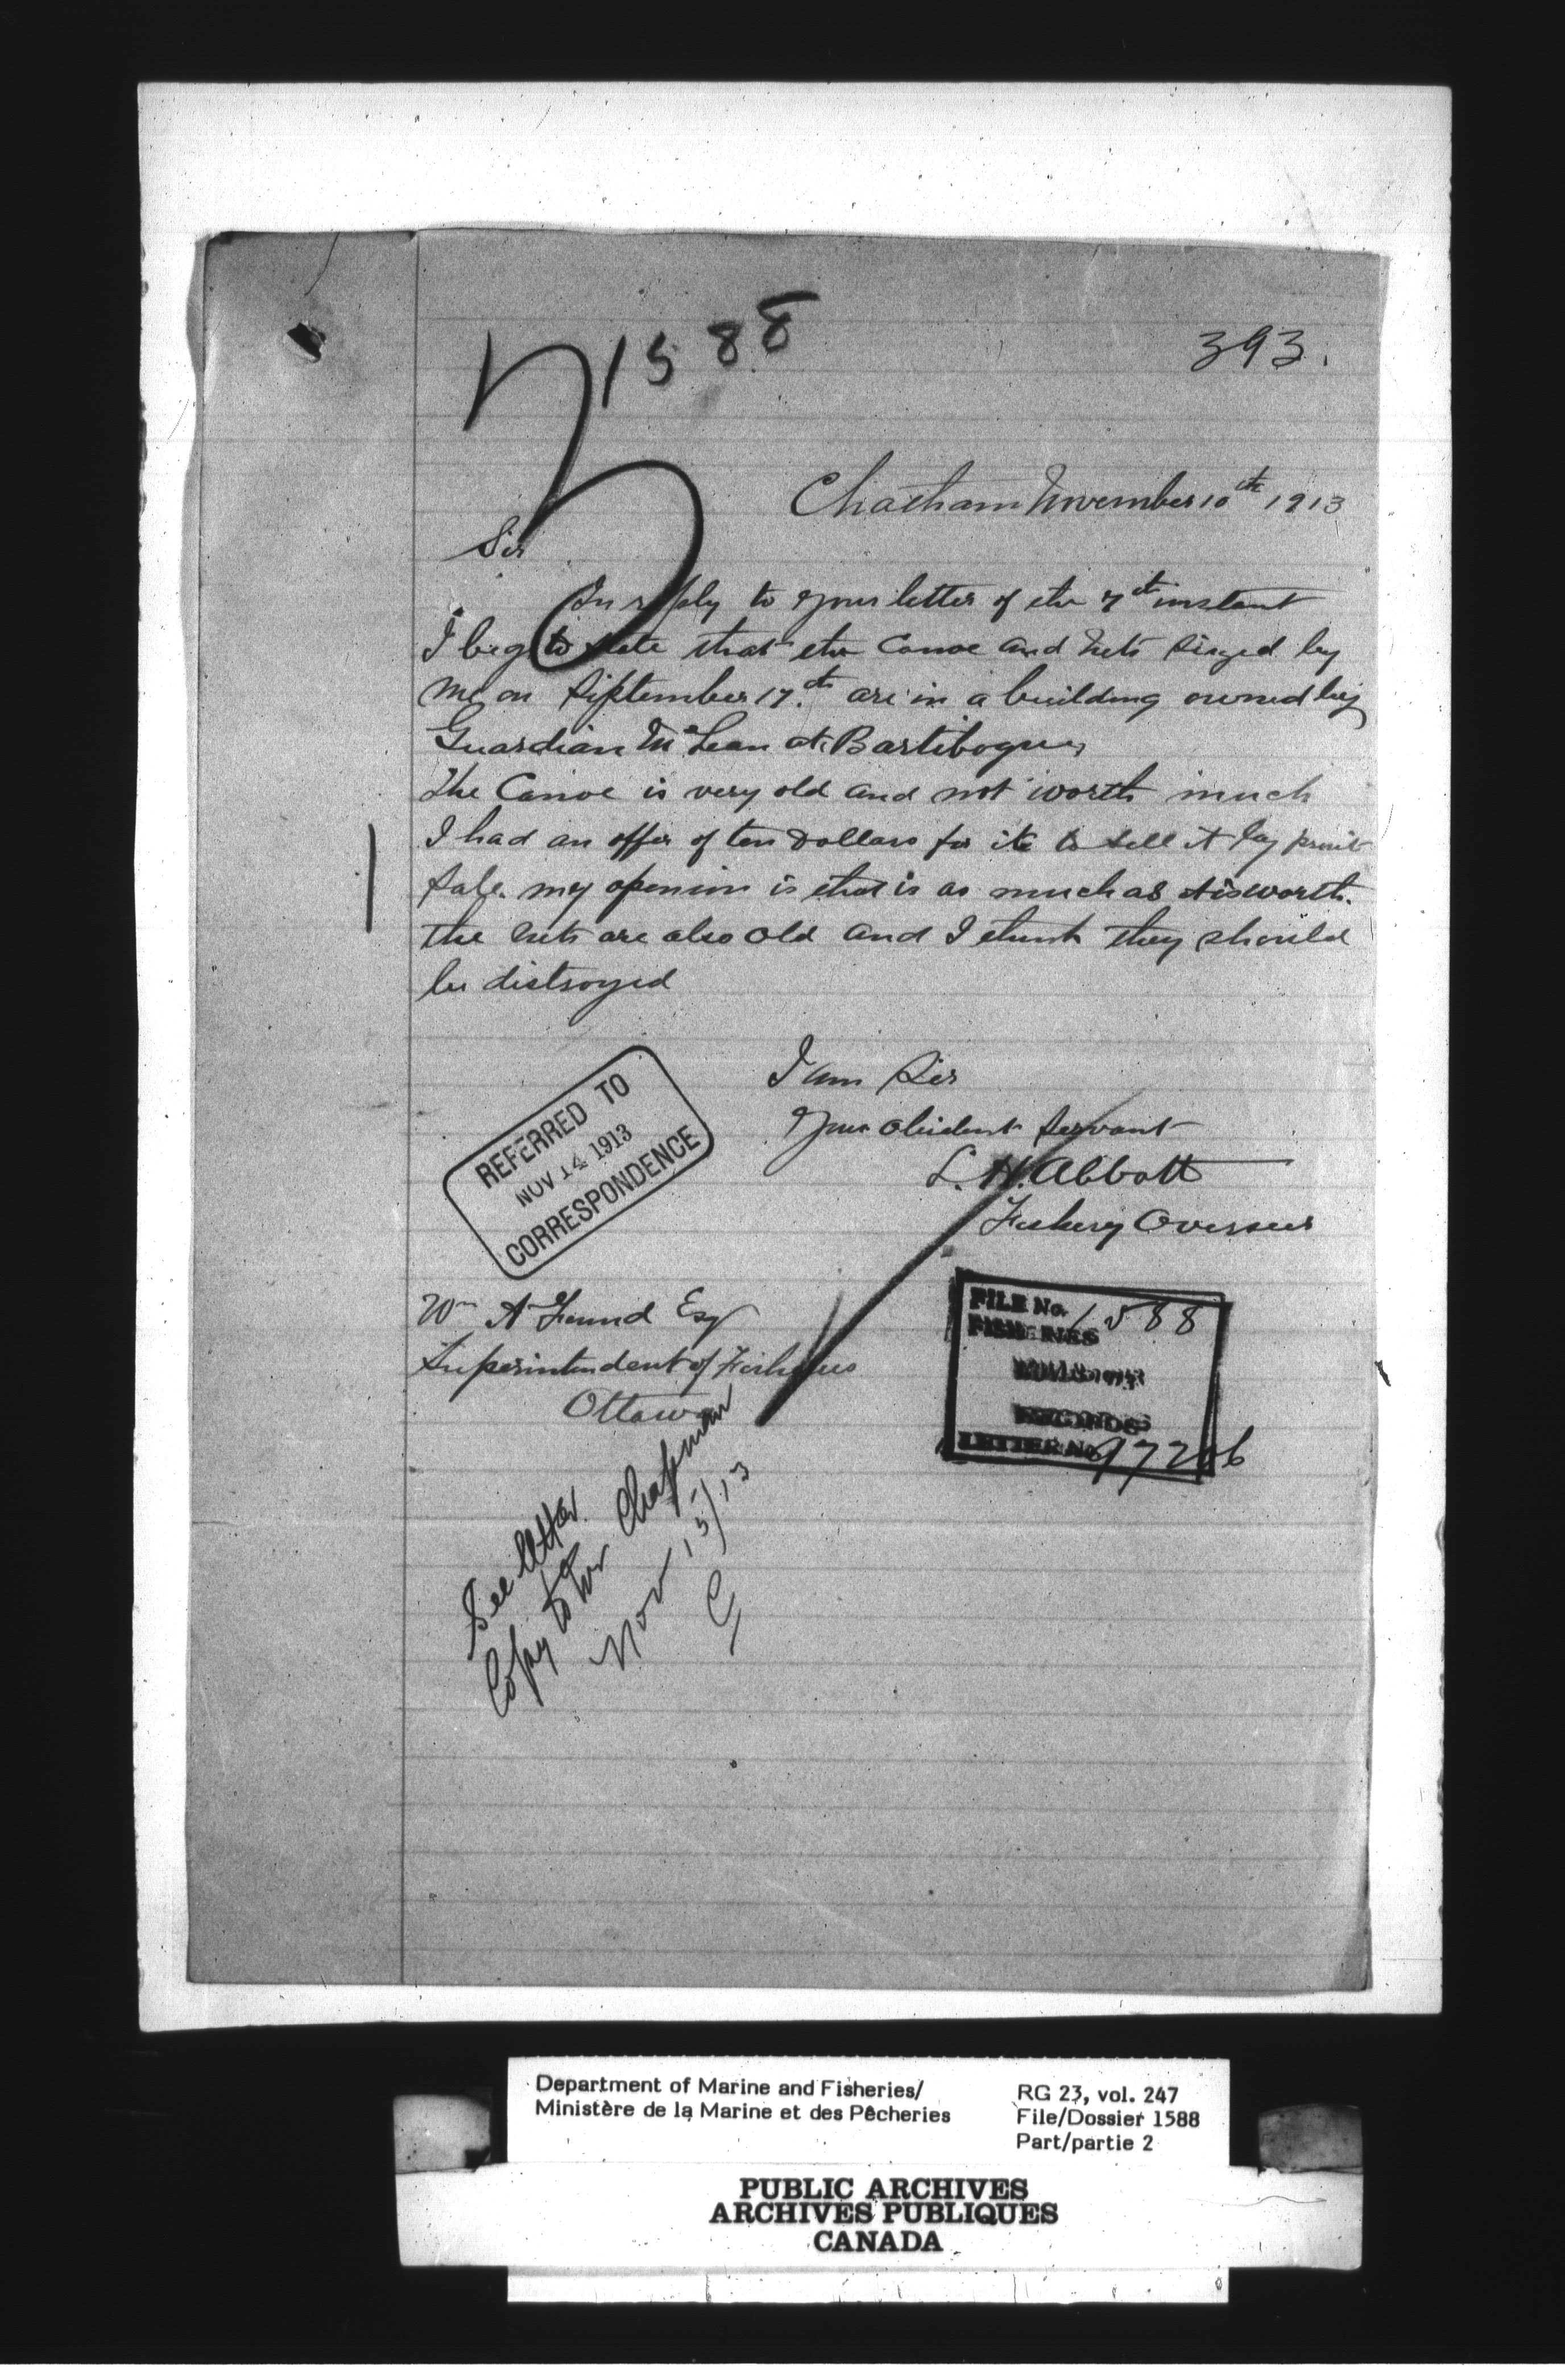 1588
393.
Chatham November 10th 1913
Sir
In reply to your letter of the 7th instant
I beg to state that the Canoe and Nets siezed by
me on September 17th. are in a building owned by
Guardian McLean at Bartibogue,
The Canoe is very old and not worth much
I had an offer of ten Dollars for it to sell it by
Sale. my openion is that is as much as tis worth.
The nets are also old and I think they should
be distroyed
I am Sir
Your obident Servant
L. H. Abbott
Fishery Overseer
REFERRED TO
NOV 14 1913
CORRESPONDENCE
Wm A Found Esq
Superintendent of Fisheries
Ottawa
FILE No. 1588
FISHERIES
RECORDS
LETTER No. 97206
See letter.
Copy to Chapman
Nov 15/13
Department of Marine and Fisheries/
Ministère de la Marine et des Pêcheries
RG 23, vol. 247
File/Dossier 1588
Part/partie 2
PUBLIC ARCHIVES
ARCHIVES PUBLIQUES
CANADA